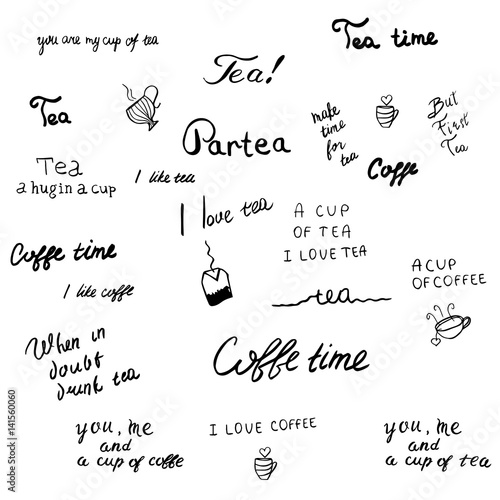 you are my cup of tea
Tea!
Tea time
Tea
Partea
make
time
for
tea
But
First
Tea
Coffe
Tea
a hug in a cup
I like tea
I love tea
A CUP
OF TEA
I LOVE TEA
Coffe time
A CUP
OF COFFEE
I like coffe
tea
When in
doubt
drink tea
Coffe time
you, me
and
a cup of coffe
I LOVE COFFEE
you, me
and
a cup of tea
Adobe Stock | #141560060